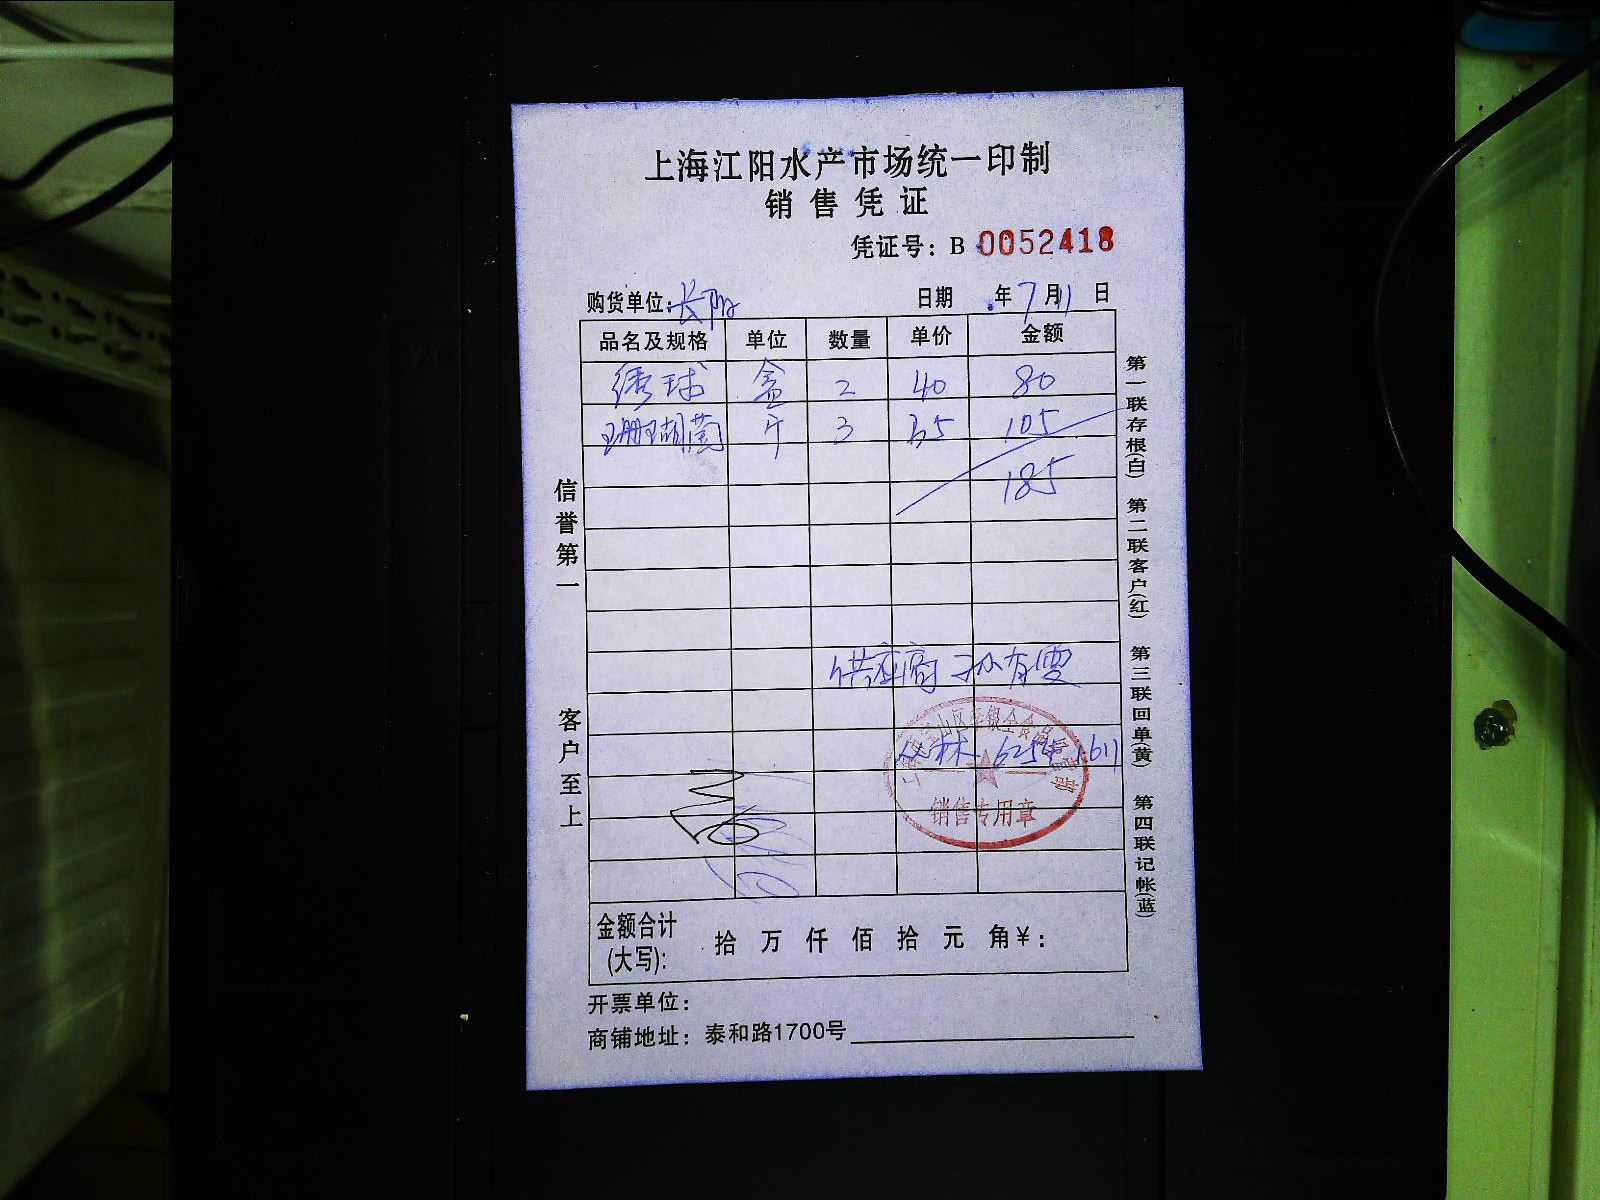 上海江阳水产市场统一印制
销售凭证
凭证号：B 0052418
购货单位：长阳 日期 年7月11日
品名及规格 单位 数量 单价 金额
绣球 盒 2 40 80
珊瑚菌 斤 3 35 105
185
供应商 孙有雯
销售专用章
金额合计(大写)： 拾 万 仟 佰 拾 元 角 ¥：
开票单位：
商铺地址：泰和路1700号
信誉第一
客户至上
第一联存根(白) 第二联客户(红) 第三联回单(黄) 第四联记帐(蓝)